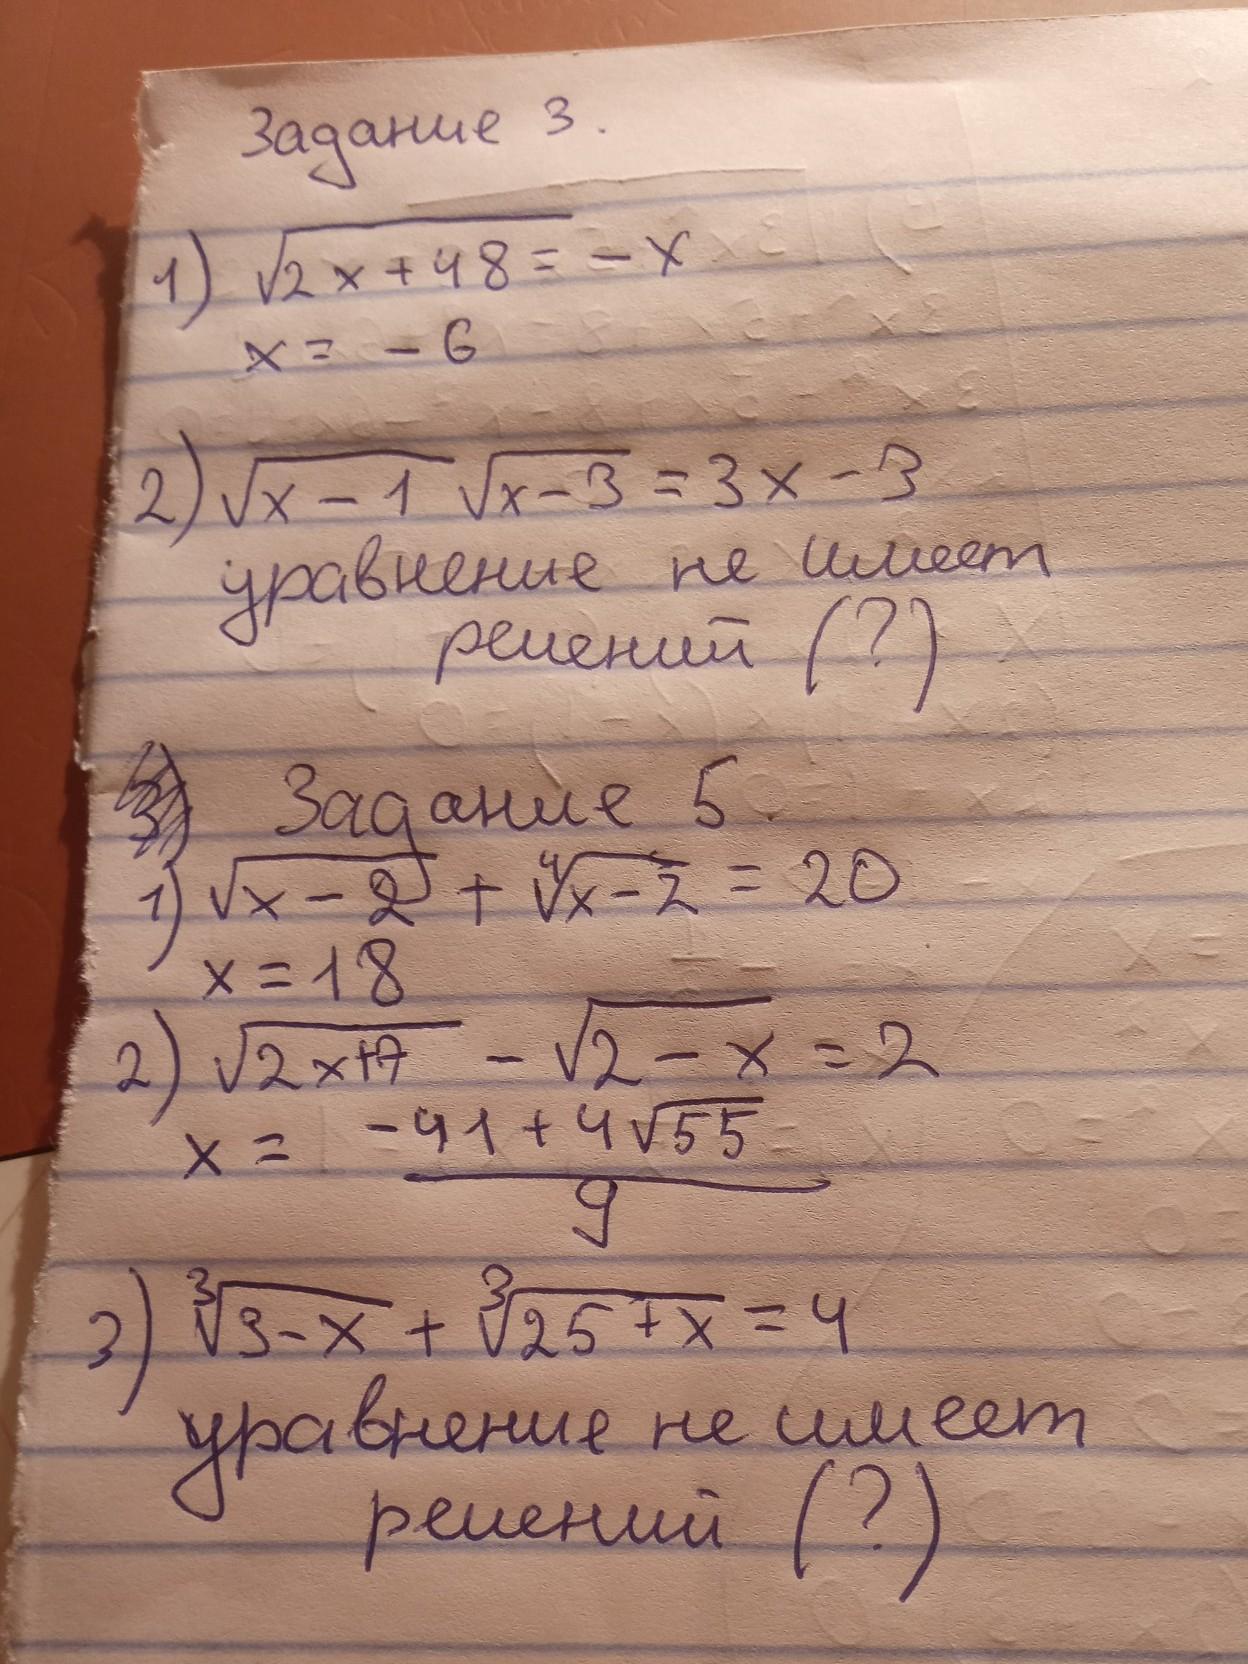 Задание 3.
1) √2x+48 = -x
x = -6
2) √x-1 √x-3 = 3x-3
уравнение не имеет
решений (?)
Задание 5
1) √x-2 + ∜x-2 = 20
x = 18
2) √2x+7 - √2-x = 2
x = -41+4√55
9
3) ∛3-x + ∛25+x = 4
уравнение не имеет
решений (?)